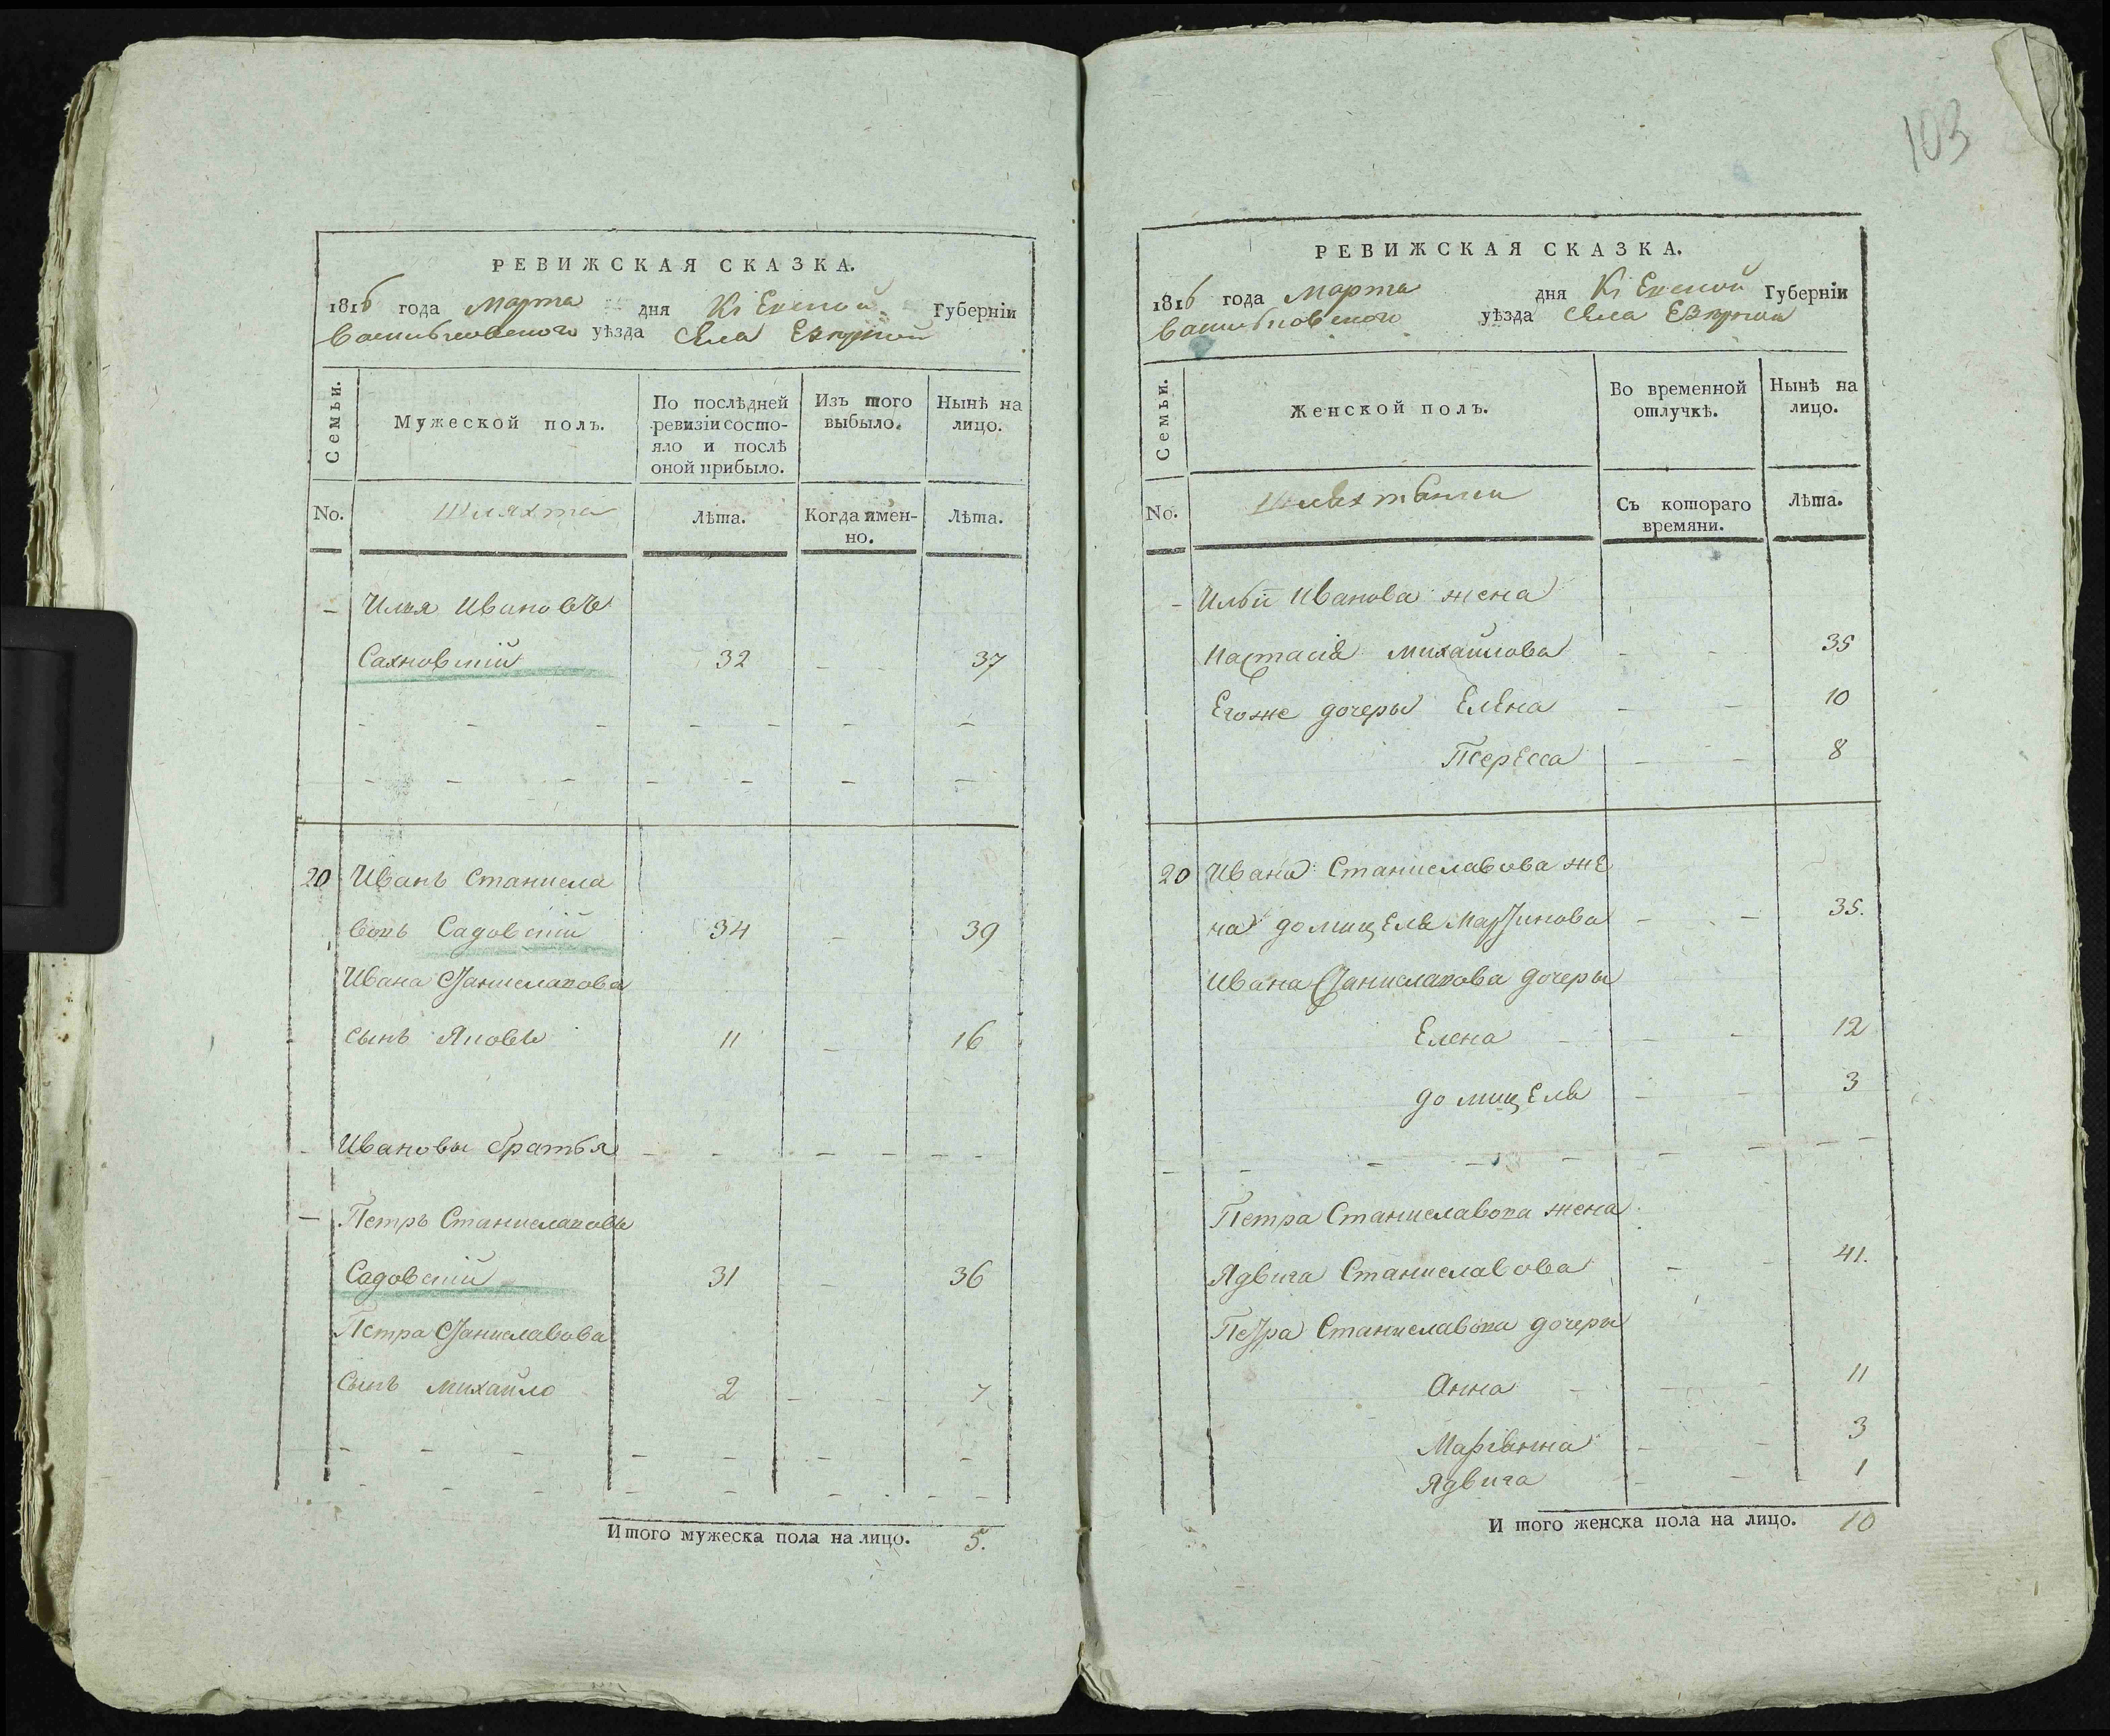 РЕВИЖСКАЯ СКАЗКА.
1816 года Марта дня Кіевской Губерніи
Васильковского уѣзда Села
Семьи.
Мужеской полъ.
По послѣдней ревизіи состо-
яло и послѣ
оной прибыло.
Изъ того
выбыло.
Нынѣ на
лицо.
No.
Шляхта
Лѣта.
Когда имен-
но.
Лѣта.
– Илья Ивановъ
Сахновскій 32 – – 37
20 Иванъ Станисла
вовъ Садовскій 34 – 39
Ивана Станиславова
сынъ Яковъ 11 – 16
– Ивановы братья – – – – – –
– Петръ Станиславовъ
Садовскій 31 – 36
Петра Станиславова
Сынъ Михайло 2 – – 7
Итого мужеска пола на лицо. 5.
103
РЕВИЖСКАЯ СКАЗКА.
1816 года Марта дня Кіевской Губерніи
Васильковского уѣзда Села
Семьи.
Женской полъ.
Во временной
отлучкѣ.
Нынѣ на
лицо.
No.
Шляхтянки
Съ котораго
времяни.
Лѣта.
– Ильи Иванова жена
Настасія Михайлова – – 35
Егоже дочеры Елена – – 10
Тересса – – 8
20 Ивана Станиславова же
на домицеля Мартинова – – 35.
Ивана Станиславова дочеры
Елена – – – 12
домицеля – – 3
Петра Станиславова жена
Ядвига Станиславова – – 41.
Петра Станиславова дочеры
Анна – – – 11
Маріанна – – 3
Ядвига – – 1
И того женска пола на лицо. 10